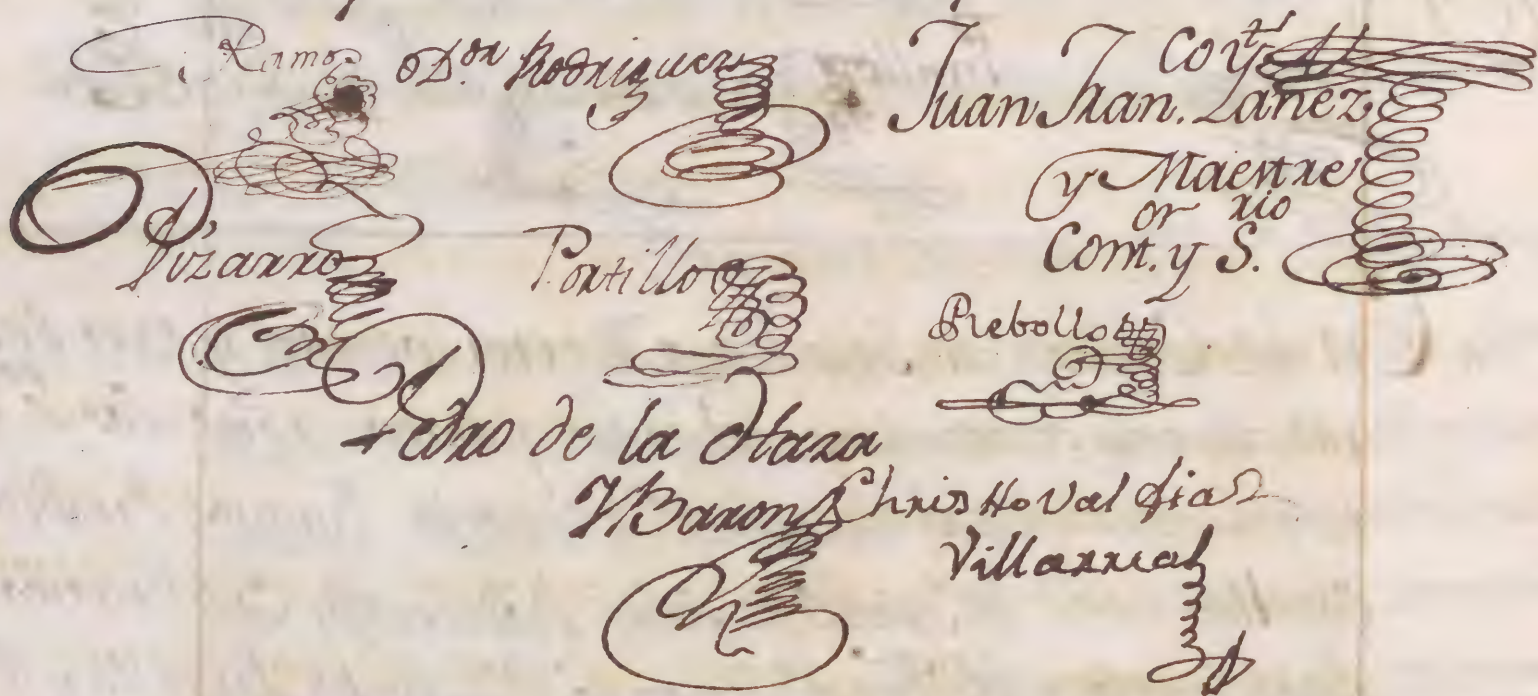 Ramo
D.or Rodriguez
Juan Fran. Lañez
y Maestre
Cont.or y S.rio
Pizarro
Portillo
Rebollo
Pedro de la Haza
Y Baron
Christoval Diaz
Villarreal